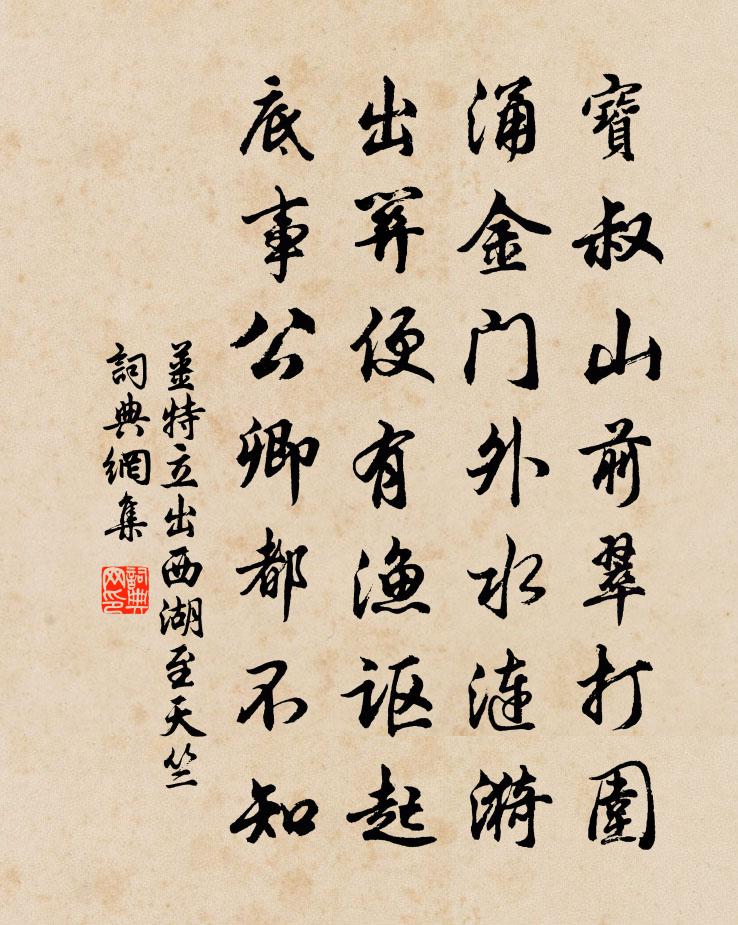 寶叔山前翠打圍
涌金门外水漣漪
出便有漁謳起
底事公卿都不知
薑特立出西湖至天竺
詞典網集
詞典网印